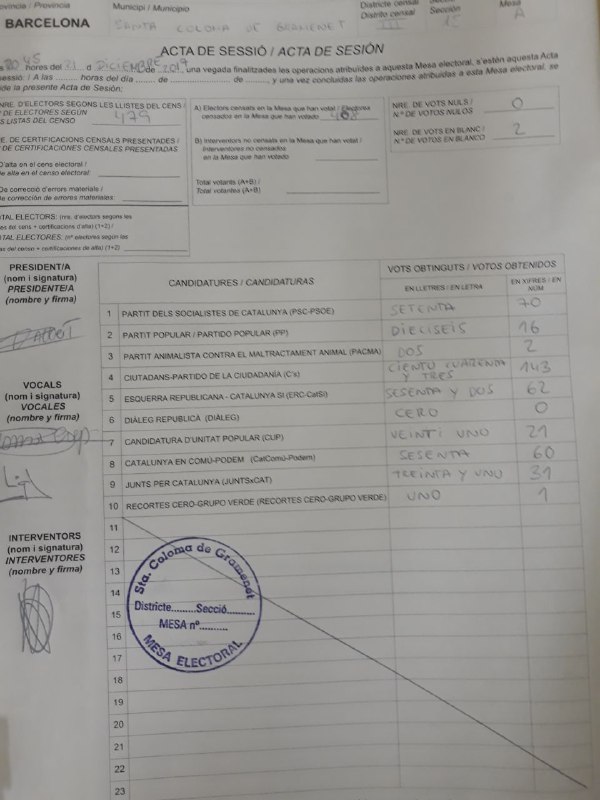 ovincia / Provincia
Municipi / Municipio
Districte censal
Distrito censal
Secció
Sección
Mesa
BARCELONA
SANTA COLOMA DE GRAMENET
III
15
A
ACTA DE SESSIÓ / ACTA DE SESIÓN
20 45 hores del 21 d DICIEMBRE de , una vegada finalitzades les operacions atribuïdes a aquesta Mesa electoral, s'estén aquesta Acta
sessió: / A las ......... horas del día ......... de ......... de ........., y una vez concluidas las operaciones atribuidas a esta Mesa electoral, se
de la presente Acta de Sesión:
NRE. D'ELECTORS SEGONS LES LLISTES DEL CENS /
º DE ELECTORES SEGÚN
S LISTAS DEL CENSO
479
E. DE CERTIFICACIONS CENSALS PRESENTADES /
DE CERTIFICACIONES CENSALES PRESENTADAS
D'alta en el cens electoral /
e alta en el censo electoral:
De correcció d'errors materials /
e corrección de errores materiales:
TAL ELECTORS: (nre. d'electors segons les
es del cens + certificacions d'alta) (1+2) /
TAL ELECTORES: (nº electores según las
as del censo + certificaciones de alta) (1+2)
A) Electors censats en la Mesa que han votat / Electores
censados en la Mesa que han votado
408
B) Interventors no censats en la Mesa que han votat /
Interventores no censados
en la Mesa que han votado
Total votants (A+B) /
Total votantes (A+B)
NRE. DE VOTS NULS /
N.º DE VOTOS NULOS
0
NRE. DE VOTS EN BLANC /
N.º DE VOTOS EN BLANCO
2
PRESIDENT/A
(nom i signatura)
PRESIDENTE/A
(nombre y firma)
VOCALS
(nom i signatura)
VOCALES
(nombre y firma)
INTERVENTORS
(nom i signatura)
INTERVENTORES
(nombre y firma)
CANDIDATURES / CANDIDATURAS
VOTS OBTINGUTS / VOTOS OBTENIDOS
EN LLETRES / EN LETRA
EN XIFRES / EN NÚM
1 PARTIT DELS SOCIALISTES DE CATALUNYA (PSC-PSOE) SETENTA 70
2 PARTIT POPULAR / PARTIDO POPULAR (PP) DIECISEIS 16
3 PARTIT ANIMALISTA CONTRA EL MALTRACTAMENT ANIMAL (PACMA) DOS 2
4 CIUTADANS-PARTIDO DE LA CIUDADANÍA (C's) CIENTO CUARENTA Y TRES 143
5 ESQUERRA REPUBLICANA - CATALUNYA SÍ (ERC-CatSí) SESENTA Y DOS 62
6 DIÀLEG REPUBLICÀ (DIÀLEG) CERO 0
7 CANDIDATURA D'UNITAT POPULAR (CUP) VEINTI UNO 21
8 CATALUNYA EN COMÚ-PODEM (CatComú-Podem) SESENTA 60
9 JUNTS PER CATALUNYA (JUNTSxCAT) TREINTA Y UNO 31
10 RECORTES CERO-GRUPO VERDE (RECORTES CERO-GRUPO VERDE) UNO 1
11
12
13
14
15
16
17
18
19
20
21
22
23
Sta. Coloma de Gramenet
Districte.........Secció.........
MESA nº.........
MESA ELECTORAL